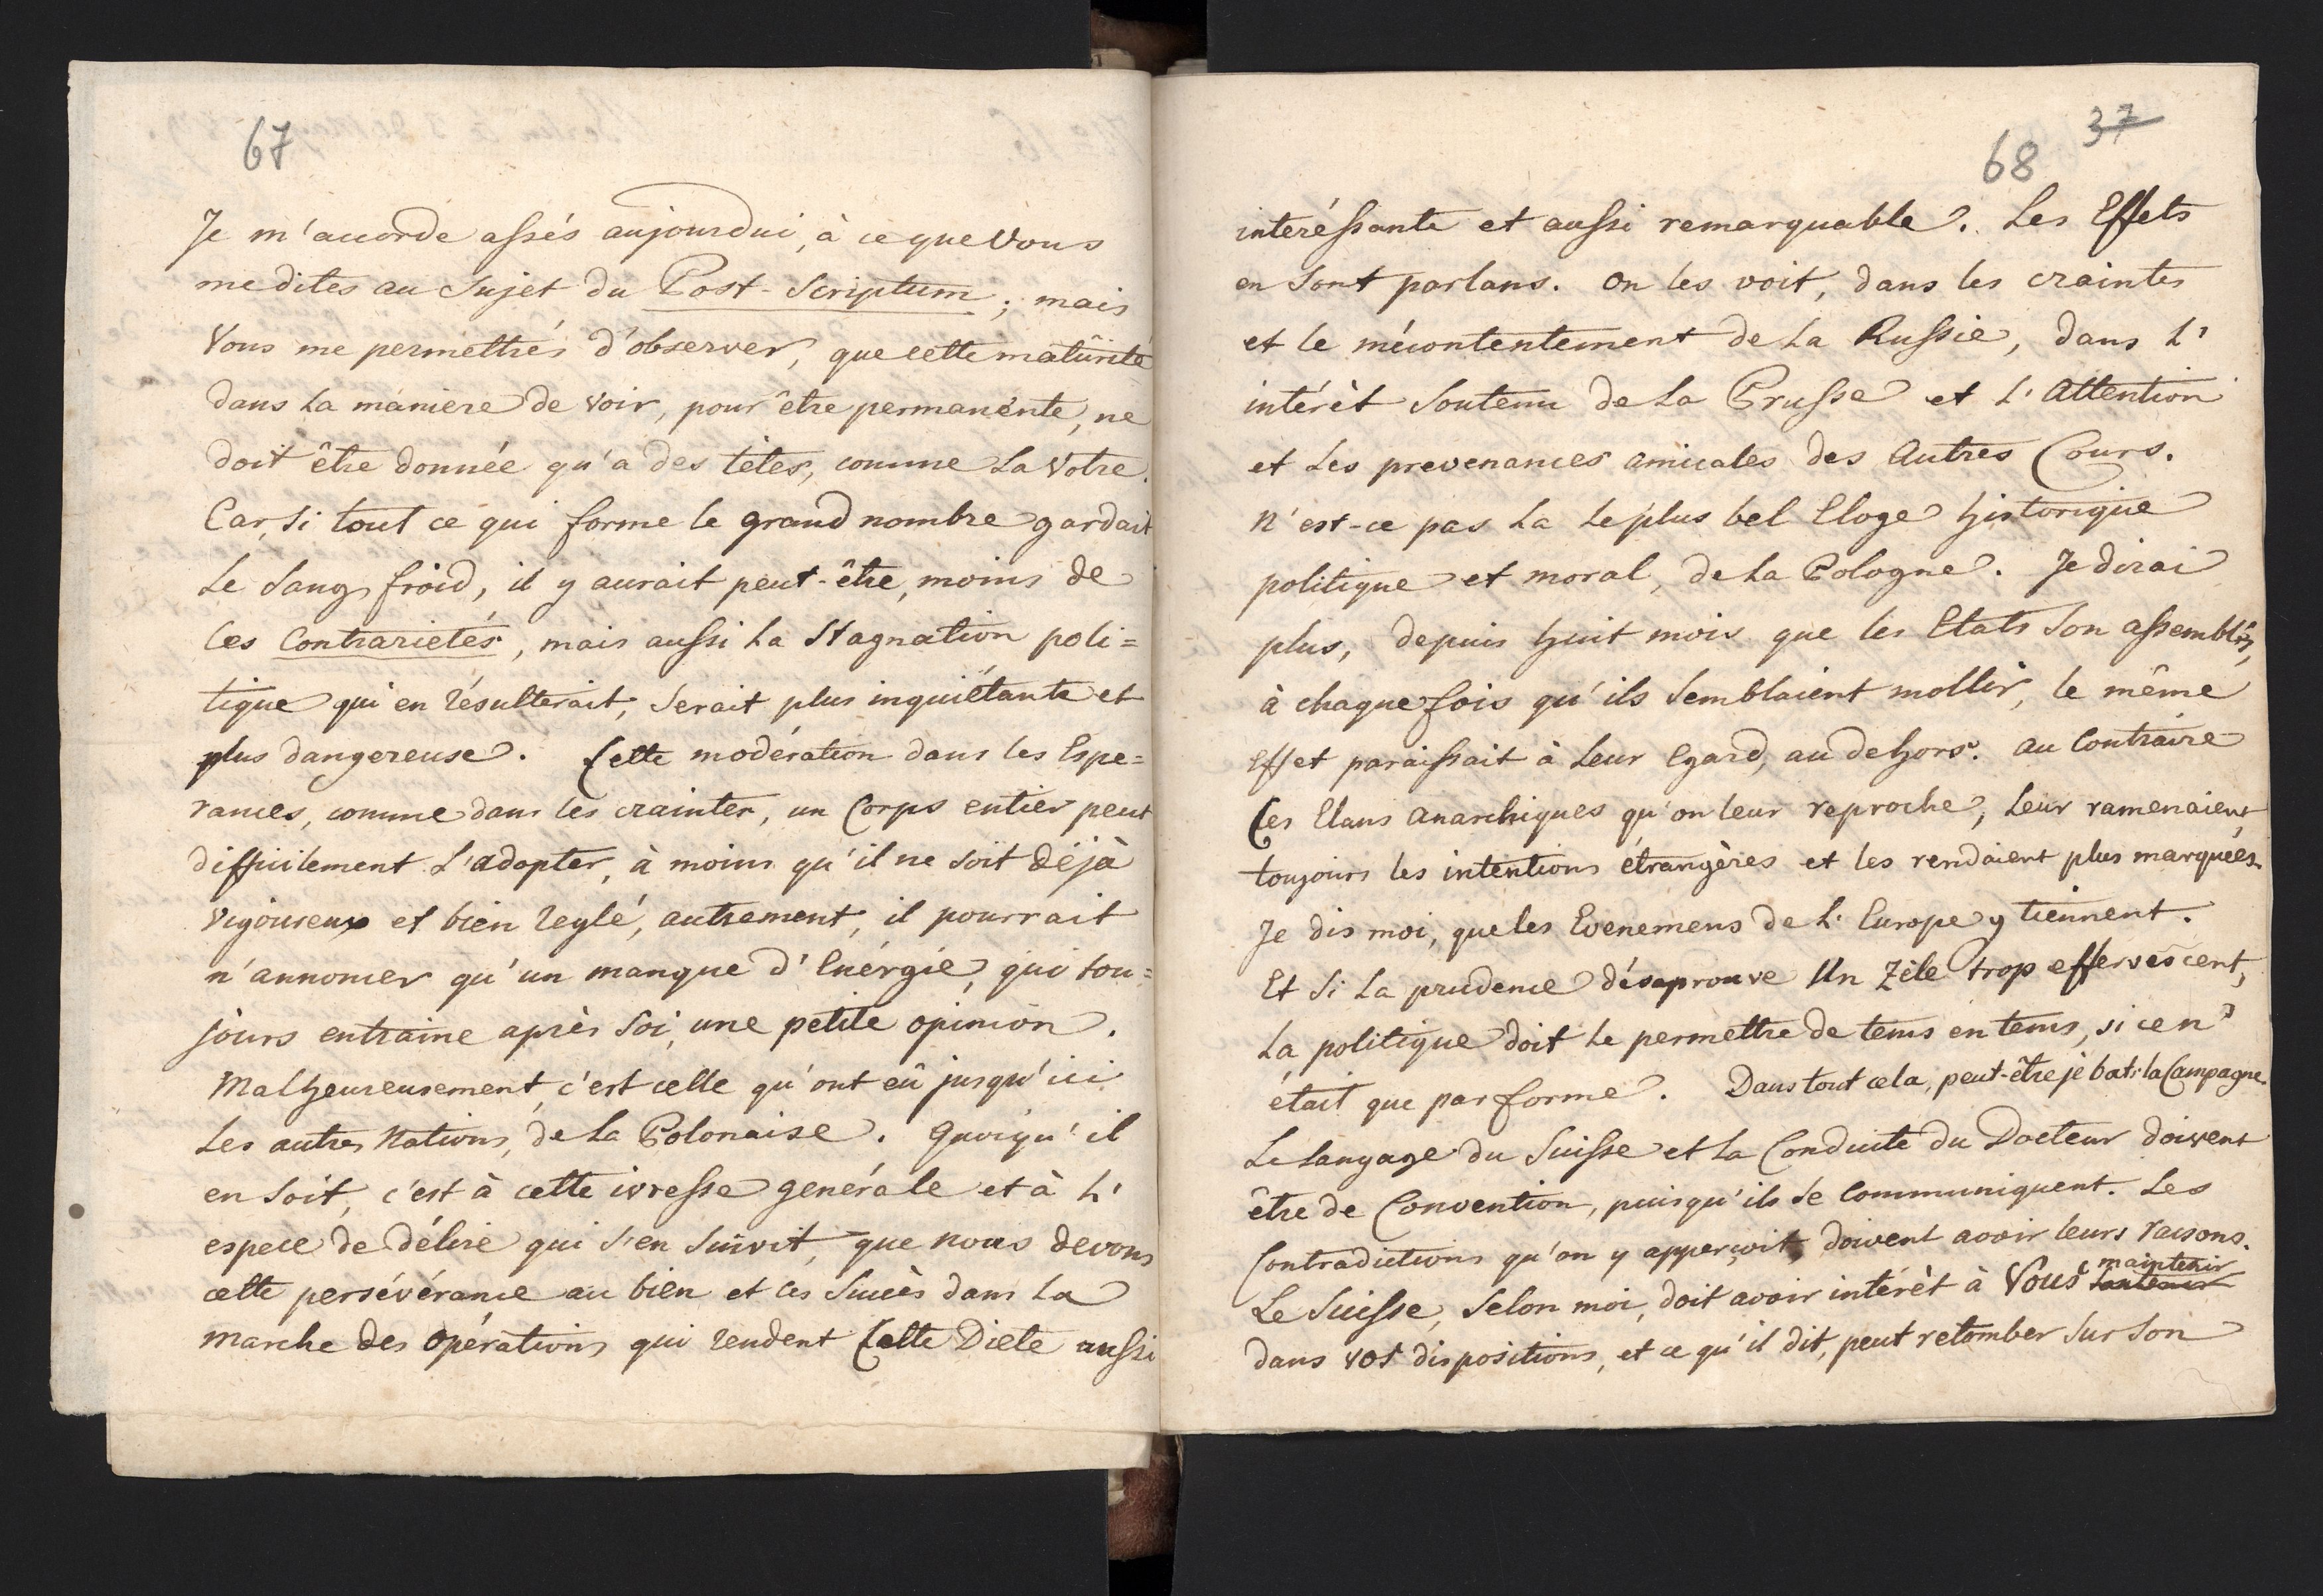 67
Je m'accorde assés aujourdui, à ce que Vous
me dites au Sujet du Post-Scriptum; mais
Vous me permettrés d'observer, que cette matûrité
dans la maniere de voir, pour être permanénte, ne
doit être donnée qu'a des têtes, comme la Votre.
Car, si tout ce qui forme le grand nombre gardait
le Sang froid, il y aurait peut-être, moins de
ces Contrarietés, mais aussi la Stagnation poli=
tique qui en résulterait, serait plus inquiétante et
plus dangereuse. Cette modération dans les Espe=
rances, comme dans les craintes, un Corps entier peut
difficilement l'adopter, à moins qu'il ne soit déjà
vigoureux et bien reglé, autrement, il pourrait
n'annoncer qu'un manque d'Enérgie, qui tou=
jours entraine après soi, une petite opinion.
Malheureusement, c'est celle qu'ont eû jusqu'ici
les autres Nations, de la Polonaise. Quoiqu'il
en soit, c'est à cette ivresse generale et à l'
espece de délire qui s'en suivit, que nous devons
cette persévérance au bien et ces Succès dans la
marche des opérations qui rendent Cette Diete aussi
37
68
interéssante et aussi remarquable. Les Effets
en sont parlans. On les voit, dans les craintes
et le mécontentement de la Russie, dans l'
intérèt soutenu de la Prusse et l'Attention
et les prevenances amicales des Autres Cours.
N'est-ce pas la le plus bel Eloge historique
politique et moral, de la Pologne. Je dirai
plus, depuis huit mois que les Etats son assemblés,
à chaque fois qu'ils semblaient mollir, le même
Effet paraissait à leur Egard, au dehors. Au Contraire
Ces Elans Anarchiques qu'on leur reproche, leur ramenaient
toujours les intentions étrangères et les rendaient plus marquées.
Je dis moi, que les Evenemens de l'Europe y tiennent.
Et si la prudence désaprouve Un Zèle trop effervescent,
la politique doit le permettre de tems en tems, si ce n'
était que par forme. Dans tout cela, peut-être je bats la Campagne.
Le langage du Suisse et la Conduite du Docteur doivent
être de Convention, puisqu'ils se Communiquent. Les
Contradictions qu'on y apperçoit, doivent avoir leurs raisons.
maintenir
Le Suisse, selon moi, doit avoir intérèt à Vous soutenir
dans vos dispositions, et ce qu'il dit, peut retomber sur son